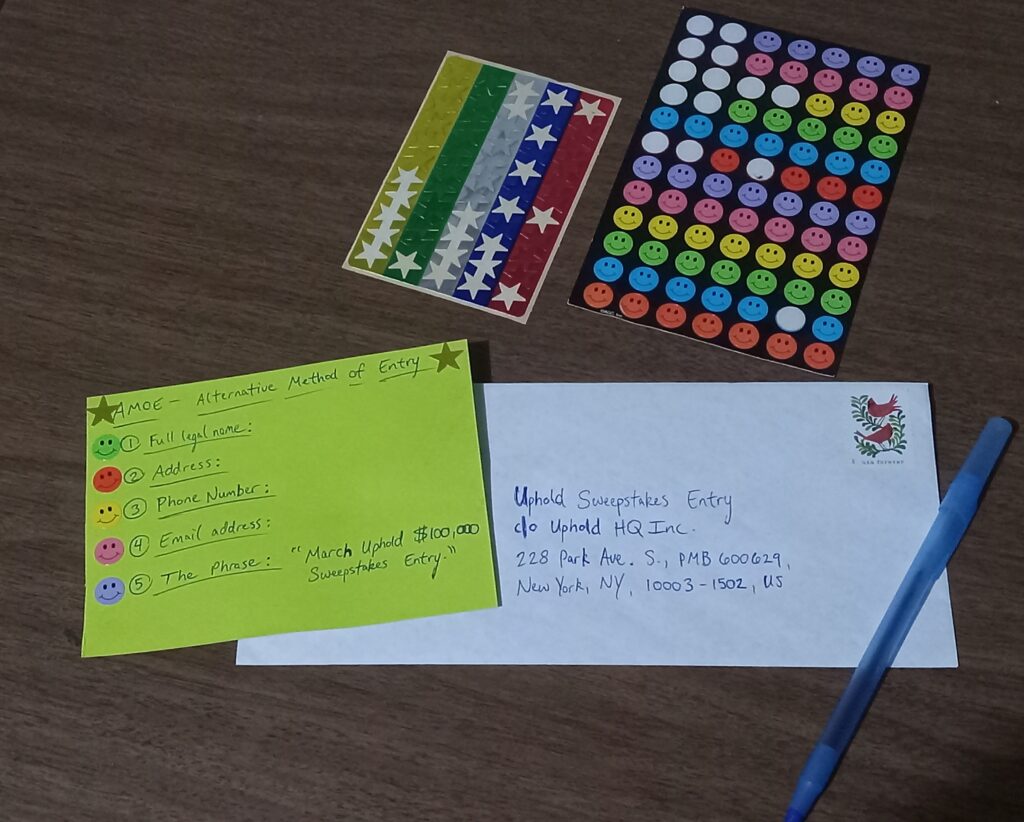 AMOE - Alternative Method of Entry
① Full legal name:
② Address:
③ Phone Number:
④ Email address:
⑤ The Phrase: "March Uphold $100,000
Sweepstakes Entry."
Uphold Sweepstakes Entry
c/o Uphold HQ Inc.
228 Park Ave. S., PMB 600629,
New York, NY, 10003-1502, US